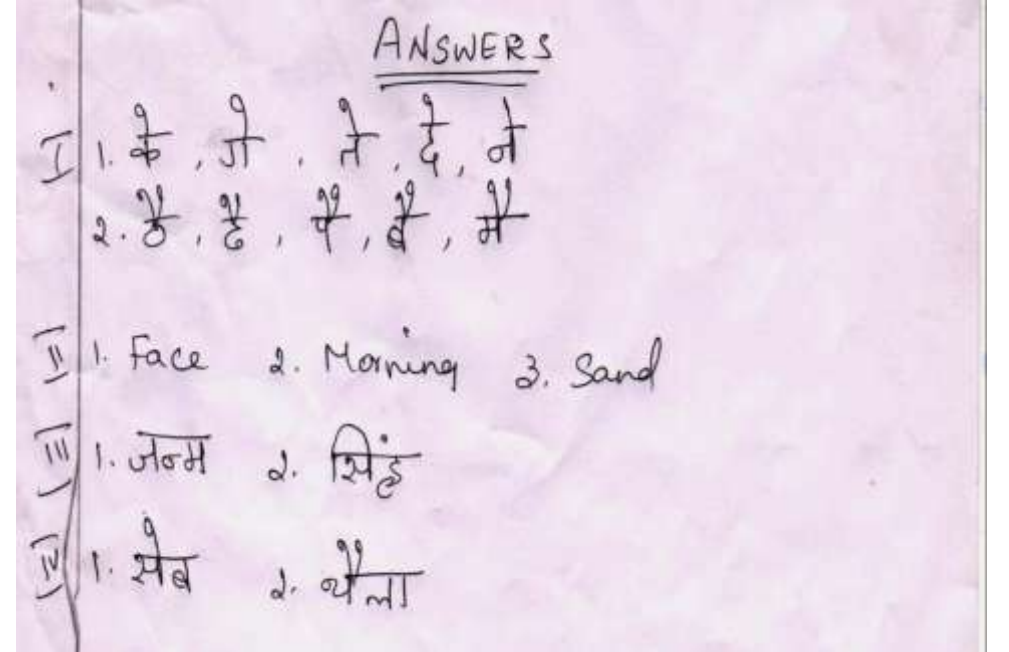 ANSWERS
I 1. के, जे, ते, दे, ने
2. ठै, ढै, पै, बै, मै
II 1. Face 2. Morning 3. Sand
III 1. जन्म 2. सिंह
IV 1. सेब 2. थैला